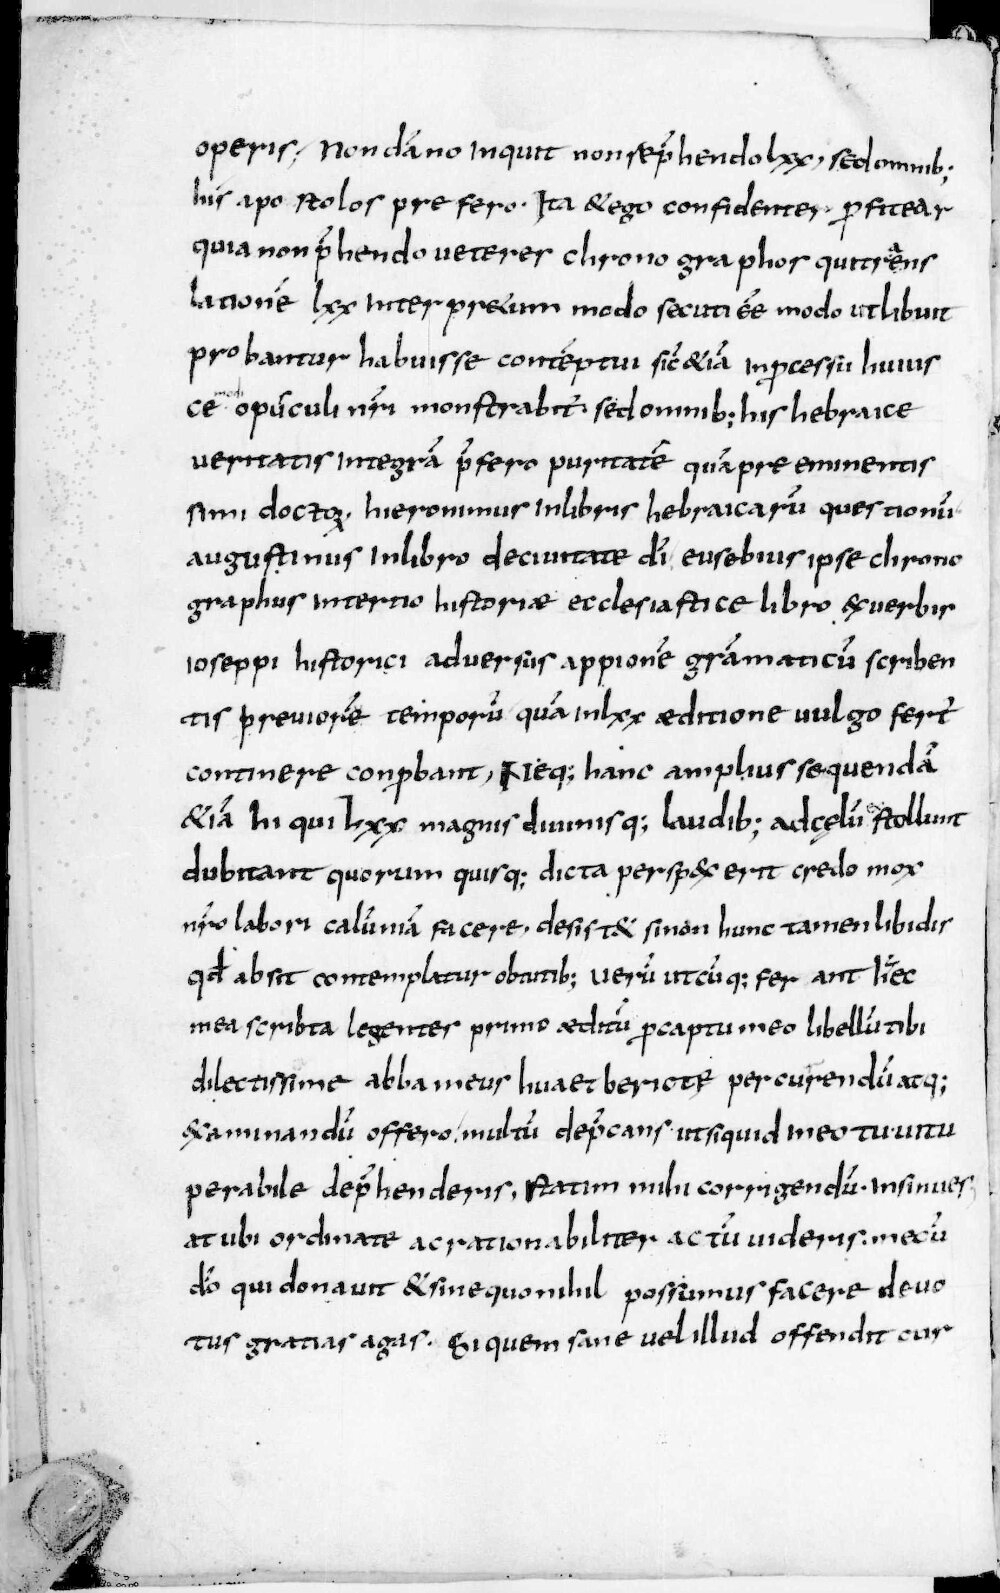 operis; Non dāno inquit non rep̄hendo lxx, sed omnib;
his apostolos prefero. Ita & ego confidenter ꝓfitear
quia non p̄hendo ueteres chronographos qui trans
lationē lxx interpr&um modo secuti eē modo ut libuit
probantur habuisse contēptui sic̄ & iā in ꝓcessu huius
cemodi opusculi nr̄i monstrabit̄. sed omnib; his hebraice
ueritatis integrā p̄fero puritatē quā preeminentis
simi doctoꝝ. hieronimus in libris hebraicarū questionū
augustinus in libro de ciuitate dī, eusebius ipse chrono
graphus in tertio historiæ ecclesiastice libro ex uerbis
ioseppi historici aduersus appionē grāmaticū scriben
tis preuiorē temporū quā in lxx æditione uulgo fert̄
continere conꝓbant, Neq; hanc amplius sequendā
&iā hi qui lxx magnis diuinisq; laudib; ad cęlū extollunt
dubitant quorum quisq; dicta persp&erit credo mox
nr̄o labori calūniā facere, desist& si non hunc tamen libidis
qd̄ absit contemplatur obtutib; uerū utcūq; ferant hęc
mea scribta legentes primo æditū ꝓ captu meo libellū tibi
dilectissime abba meus huaetbericte percurendū atq;
&aminandū offero, multū dep̄cans ut siquid in eo tu uitu
perabile dep̄henderis, statim mihi corrigendū. insinues,
at ubi ordinate ac rationabiliter actū uideris. mecū
dō qui donauit & sine quo nihil possumus facere deuo
tus gratias agas. Si quem sane uel illud offendit cur